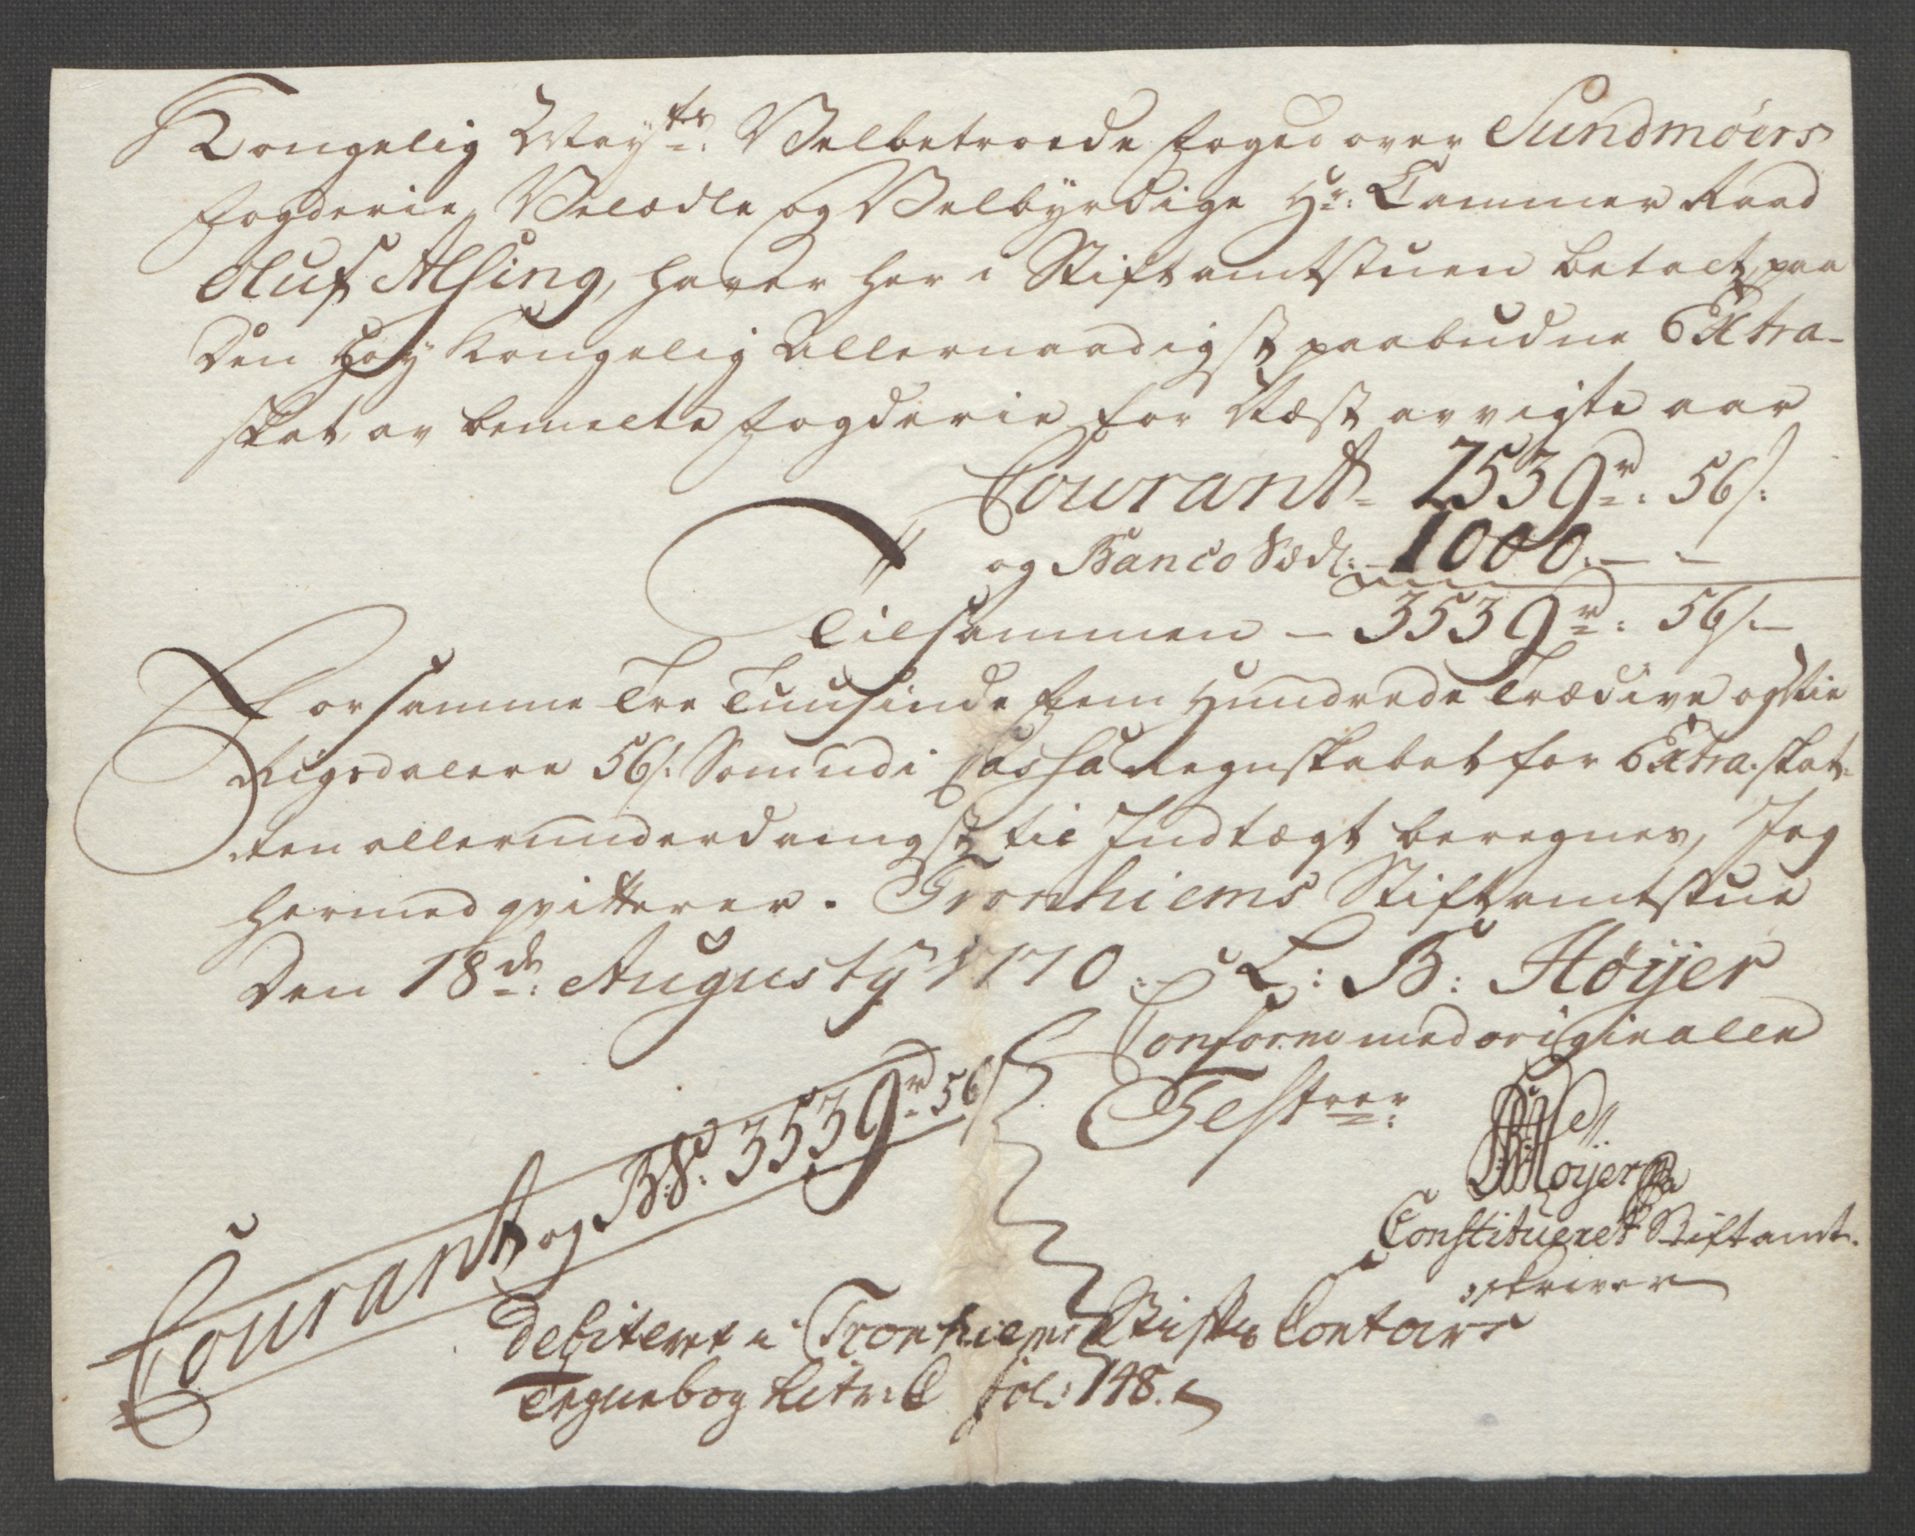 Kongelig Mayts: Velbetroede foged over Sundmöers
fogderie, Velædle og Velbyrdige Hr: Cammer Raad
Oluf Alsing, haver her i Stiftamtstuen betalt, paa
Den Høy Kongelig Allernaadigst paabudne Extra-
skat, av bemelte fogderie for Næst avvigte aar
Courant - 2539 rd: 56 s:
og Banco Sedl: - 1000. - -
Tilsammen - 3539 rd: 56 s. -
For samme Tre Tuusinde fem Hundrede Trædive og Nie
Rigsdalere 56 s: Som udi Cassa Regnskabet for Extra-skat-
ten allerunderdanigst til Indtægt beregnes, Jeg
hermed qvitterer. Tronhiems Stiftamtstue
Den 18de: Augusty 1770. L: B: Höijer
Conform med originalen
Testerer:
Höijer
Constitueret Stiftamt-
skriver
Courant og B:S: 3539 rd: 56 s
Debiteret i Tronhiems Stifts Contoirs
Tegnebog Litr: C fol: 148.